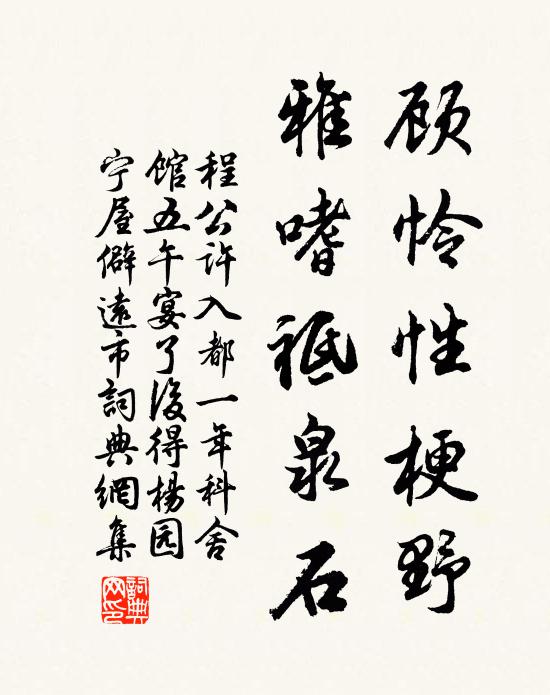 顾怜性梗野
雅嗜祗泉石
程公许入都一年科舍
馆五午宴了後得杨园
宁屋僻遠市詞典網集
詞典
网印